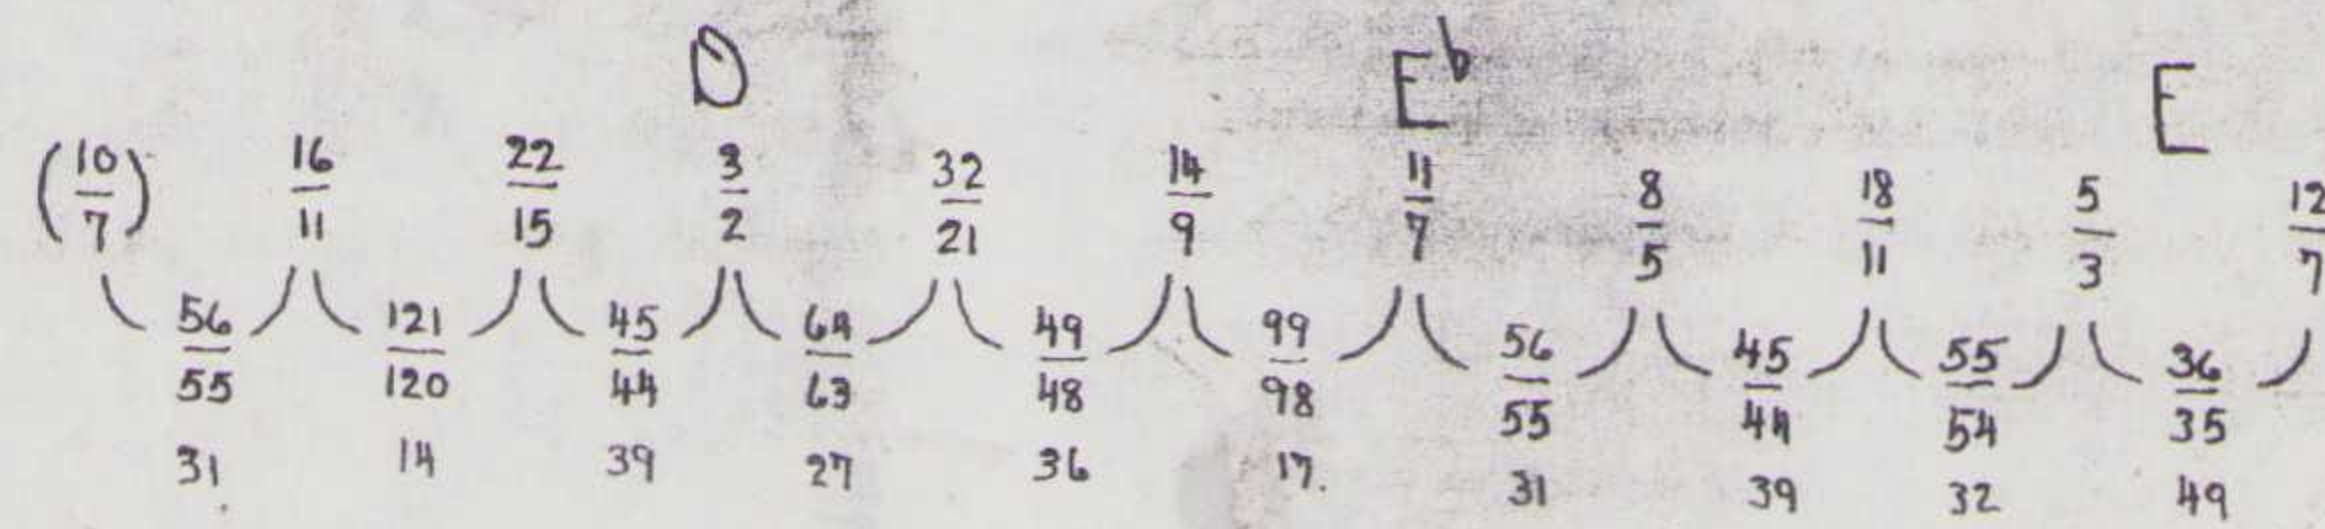 D E♭ E
(10/7) 16/11 22/15 3/2 32/21 14/9 11/7 8/5 18/11 5/3 12/7
56/55 121/120 45/44 64/63 49/48 99/98 56/55 45/44 55/54 36/35
31 14 39 27 36 17. 31 39 32 49